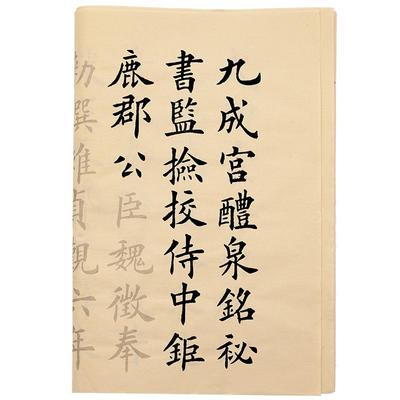 九成宮醴泉銘秘
書監撿挍侍中鉅
鹿郡公臣魏徵奉
勑撰維貞觀六年